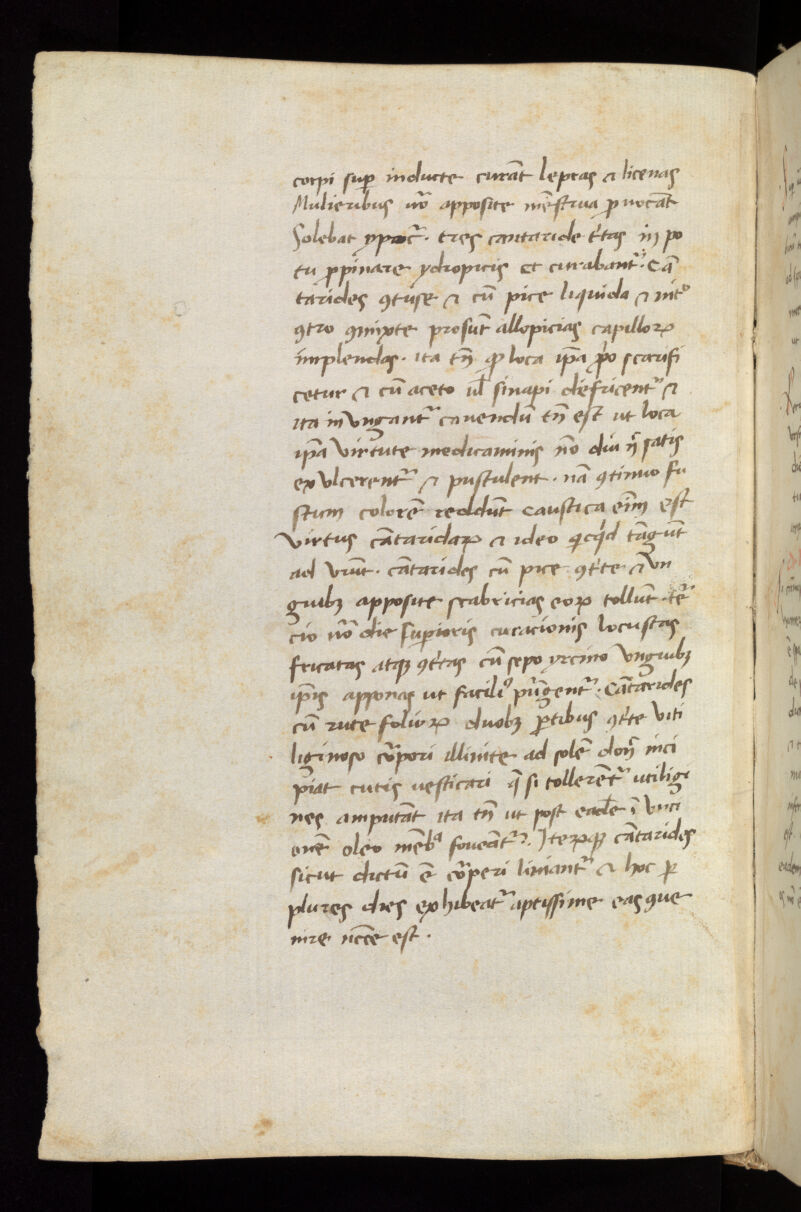 corpi sup inducte curāt lepras ⁊ licenas
Mulieribus u͞o apposite mēstrua ꝓuocāt
Solebat ypocͬ. tres cantaride tͥtas in po
tu ꝓpinare ydropicis et curabantͬ. Cā
tarides ꝯtuse ⁊ cū pice liquida ⁊ nitͦ
ꝯtro ꝯmixte prosūt allopicias capilloꝝ
implendas. ita tn̄ qͩ loca ip̄a pͥo scarifi
cetur ⁊ cū aceto ul̄ sinapi diefricentͬ ⁊
ita in ungantͬ cauendū tn̄ est ut loca
ip̄a virtute medicaminis nō diu n̄ satis
exulcerentͬ ⁊ pustulent. nā ꝯtinuo fu
scum colorē reddūt caustica eīm est
virtus cātaridaꝝ ⁊ ideo qͥcqͥd tāgūt
ad urūt. cātarides cū pice ꝯtͥte ⁊ un
guibꝫ apposite scabricias eoꝝ tollūt. tēͬ
cio u͞o die suꝑioris curacionis locustas
fricatas atqꝫ ꝯtͥtas cū sepo yrcino unguibꝫ
ip̄is apponas ut faciliꝰ pūgentͬ. Cātarides
cū rute folioꝝ duobꝫ ꝑtibus ꝯtͥte viti
liginoso cͦpori illinite ad solē don̄ inci
piat cutis uesticari q̄ si tollerētͬ uitiligi
nes amputāt ita tn̄ ut post eadē ī unci
onē oleo mēbͣ foueātͬ. Iteꝝqꝫ cātarides
sicut dictū ē cͦperi liniantͬ ⁊ hoc ꝑ
plures dies exhibeatͬ aptissime eas ꝯue
nire nc̄ce est.